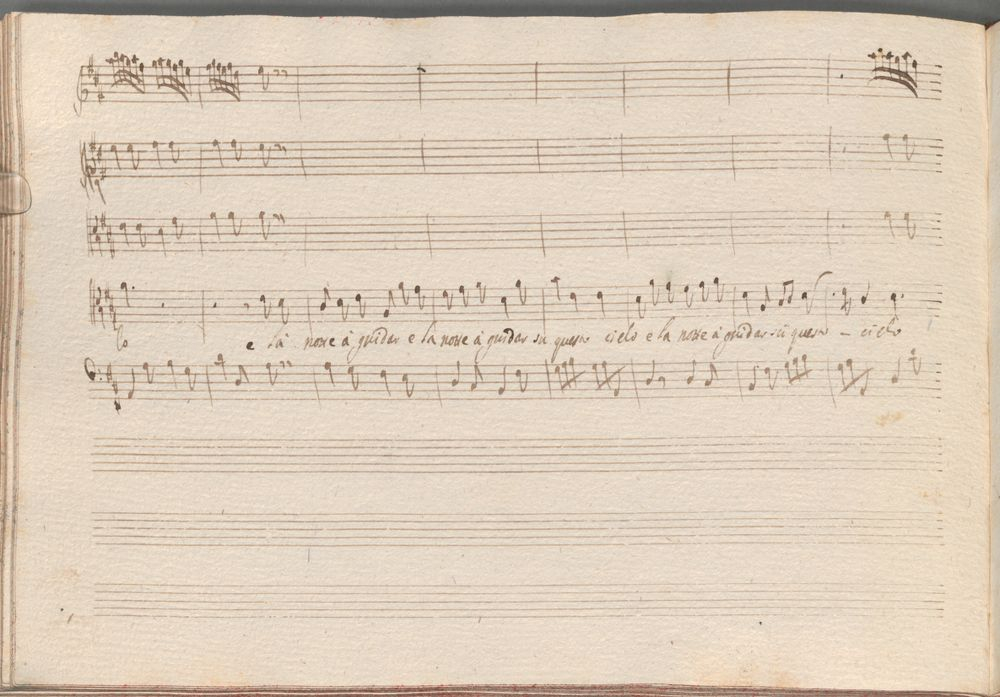 lo e la notte à guidar e la notte à guidar sù questo cielo e la notte à guidar sù questo - cielo